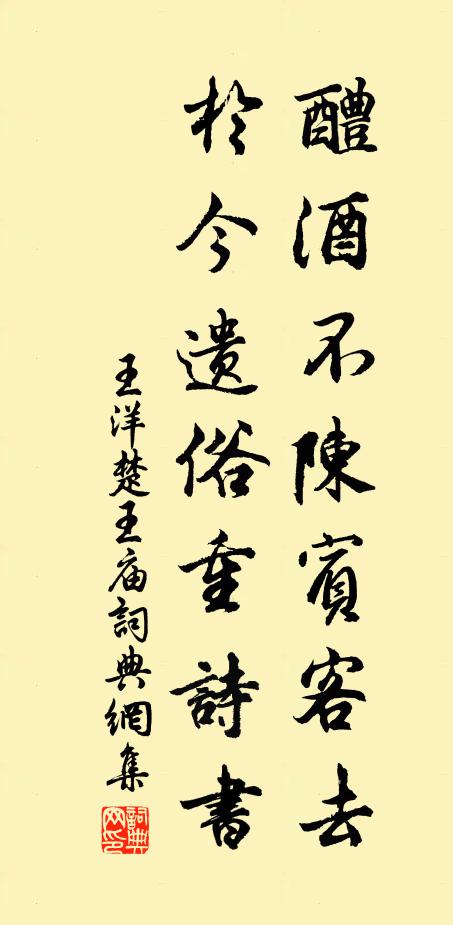 醴酒不陳賓客去
於今遺俗重詩書
王洋楚王庙詞典網集
詞典網印